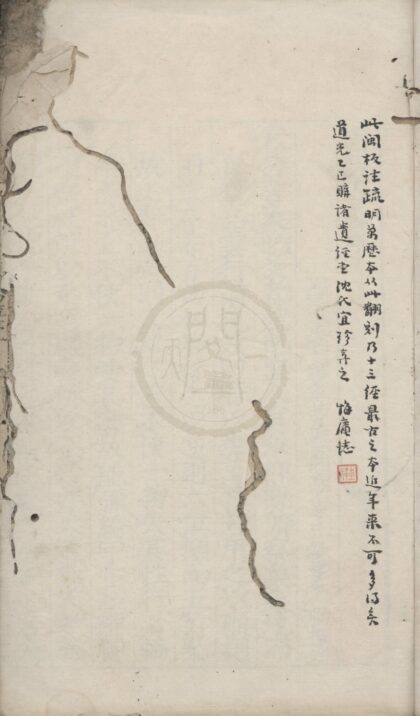 此閩板注疏明萬歷本从此翻刻乃十三經最古之本近年來不可多得矣
道光乙巳購諸遺經堂沈氏宜珍弆之 悔廬誌